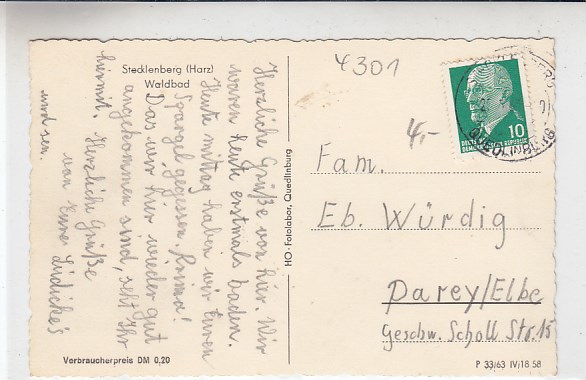 Stecklenberg (Harz)
Waldbad
Herzliche Grüße von hier. Wir
waren heute erstmals baden.
Heute mittag haben wir Euren
Spargel gegessen. Prima!
Das wir hier wieder gut
angekommen sind, seht Ihr
hiermit. Herzliche Grüße
von Eure Lüdicke's
und sen.
Verbraucherpreis DM 0,20
HO-Fotolabor, Quedlinburg
4301
4,-
10
DEUTSCHE DEMOKRATISCHE REPUBLIK
QUEDLINBURG
Fam.
Eb. Würdig
Parey/Elbe
Geschw. Scholl Str. 15
P 33/63 IV/18 58